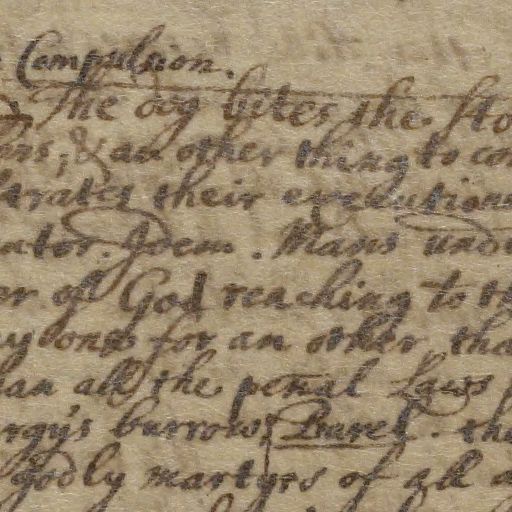 Compulsion.
The dog bites the sto
ors, & an other thing to con
trates their executione
ator. Idem. Mans und
er of God reaching to th
ay ons for an other tha
han all the penal Laws
ergy's burrow, Burel. tha
godly martyrs of all a